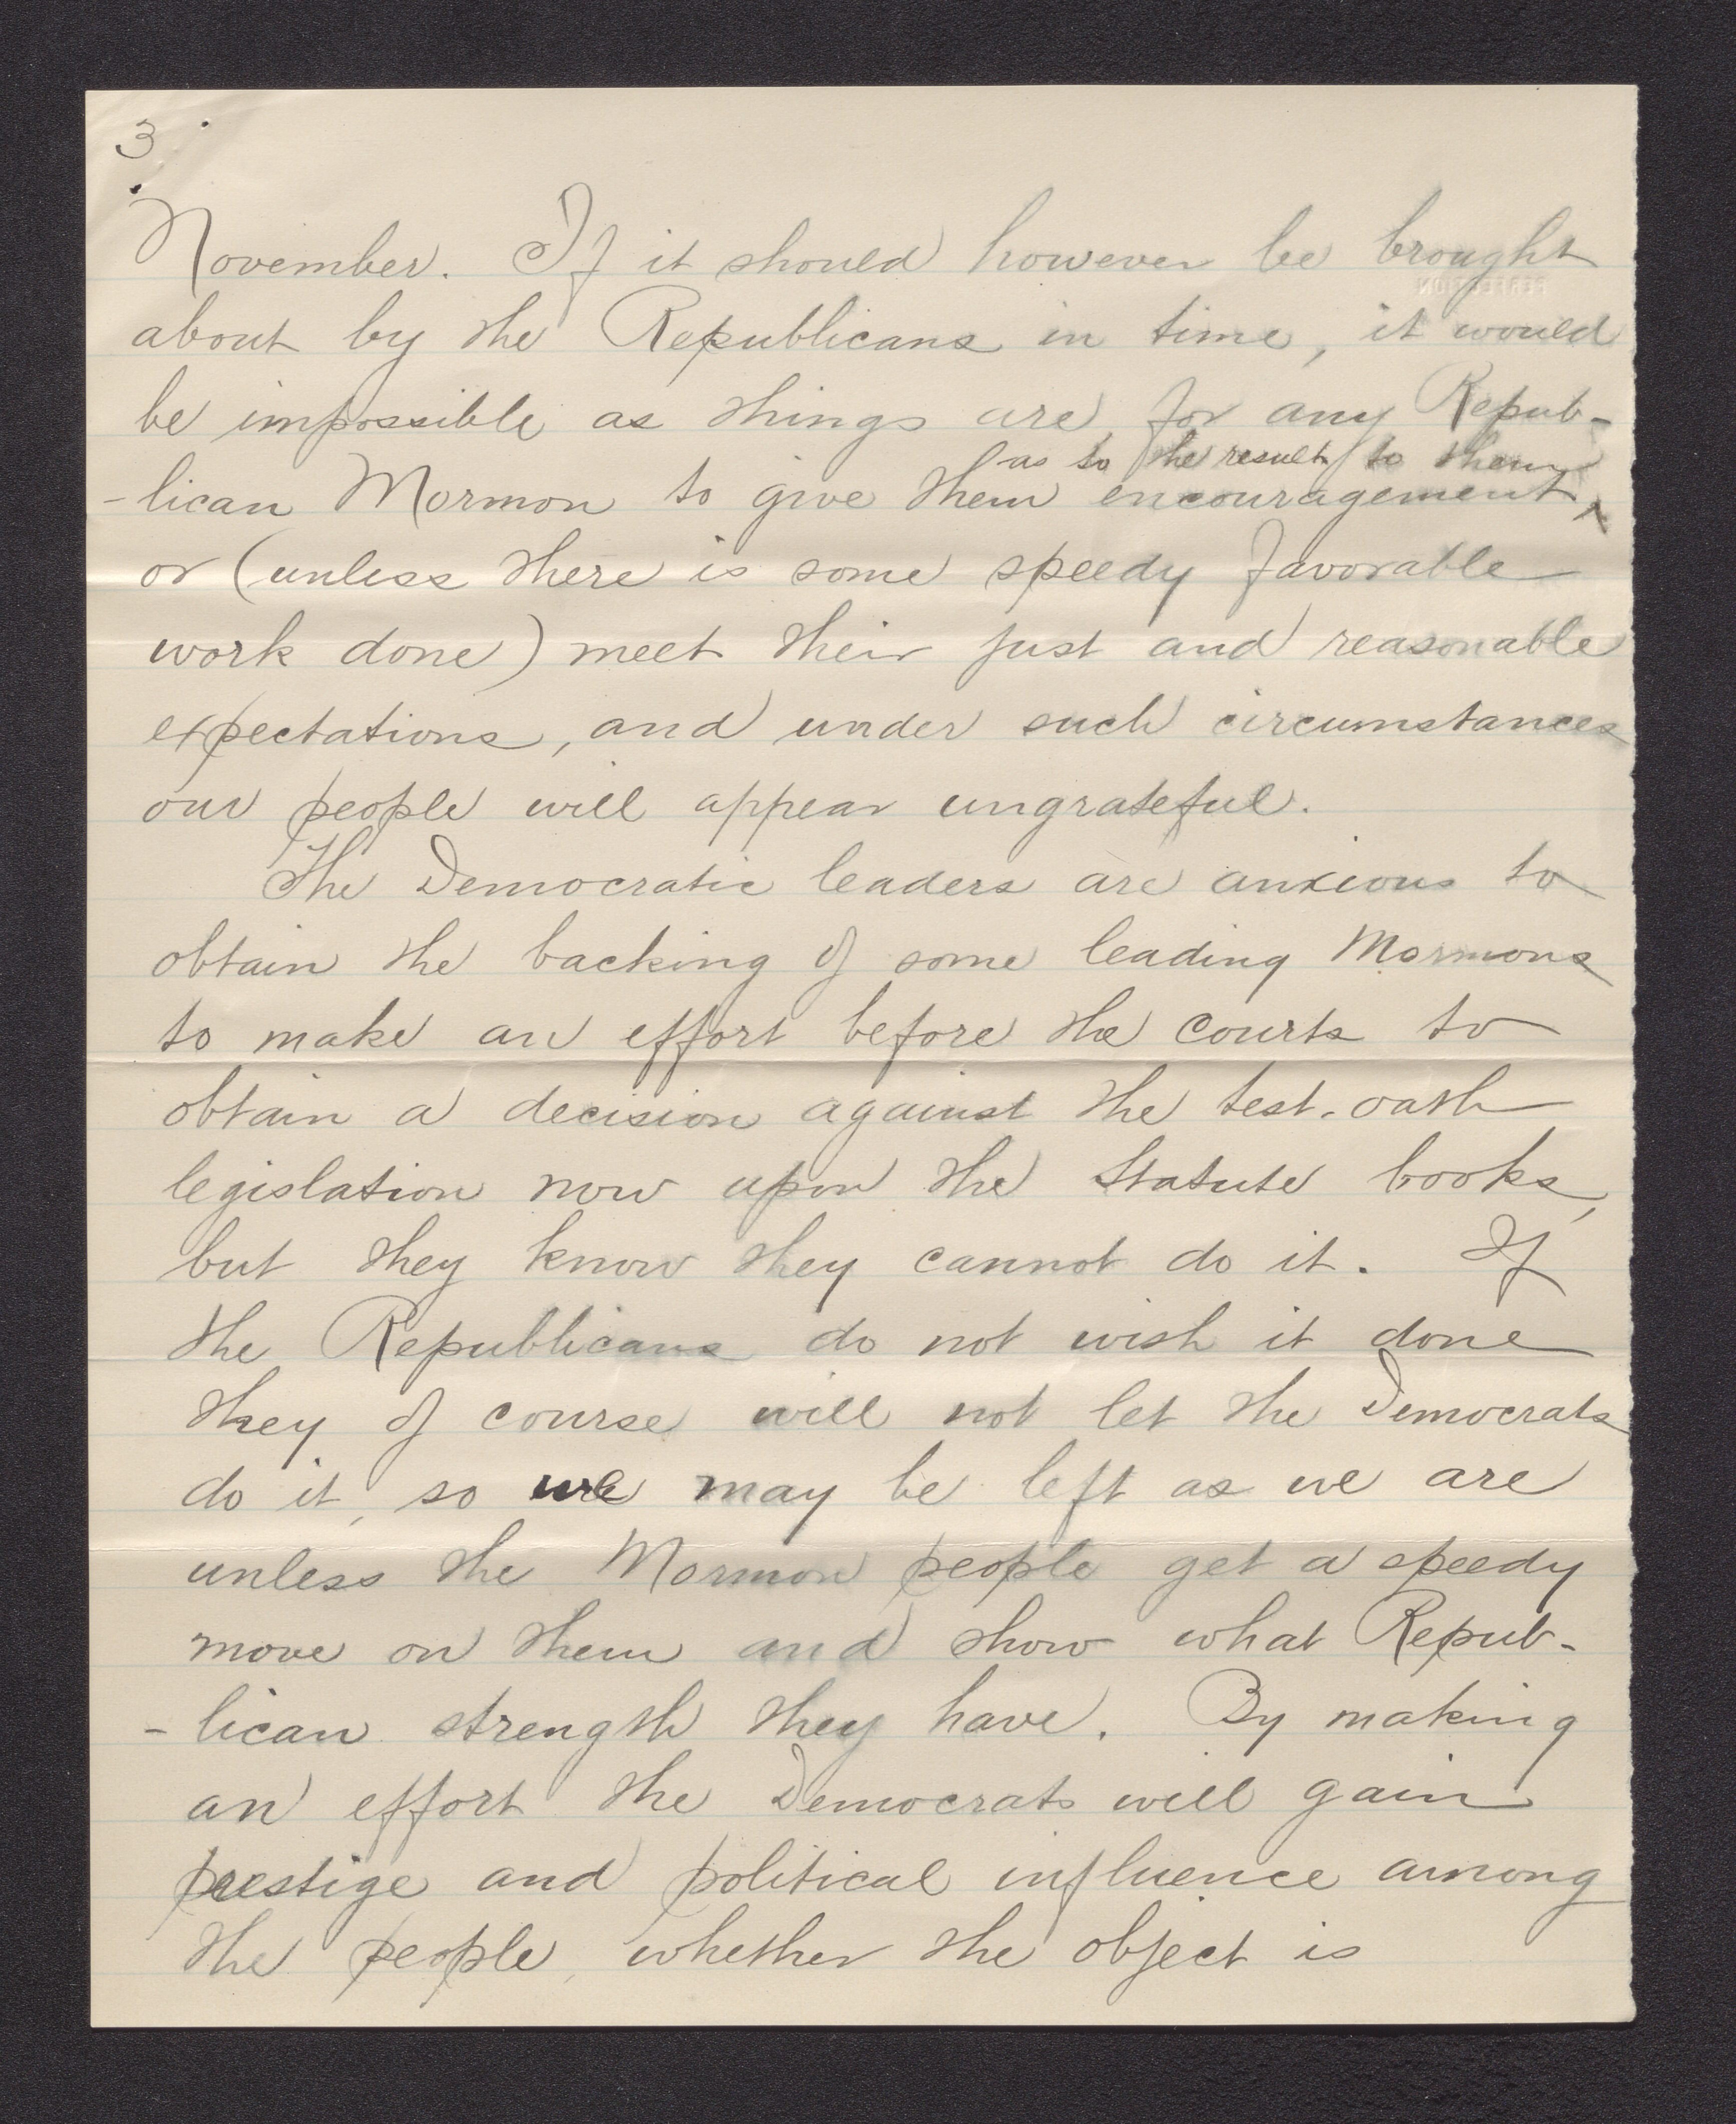 3
November. If it should however be brought
about by the Republicans in time, it would
be impossible as things are for any Repub-
as to the result to them
-lican Mormon to give them encouragement,
or (unless there is some speedy favorable
work done) meet their just and reasonable
expectations, and under such circumstances
our people will appear ungrateful.
The Democratic leaders are anxious to
obtain the backing of some leading Mormons
to make an effort before the courts to
obtain a decision against the test-oath
legislation now upon the Statute books,
but they know they cannot do it. If
the Republicans do not wish it done
they of course will not let the Democrats
do it, so we may be left as we are
unless the Mormon people get a speedy
move on them and show what Repub-
-lican strength they have. By making
an effort the Democrats will gain
prestige and political influence among
the people, whether the object is